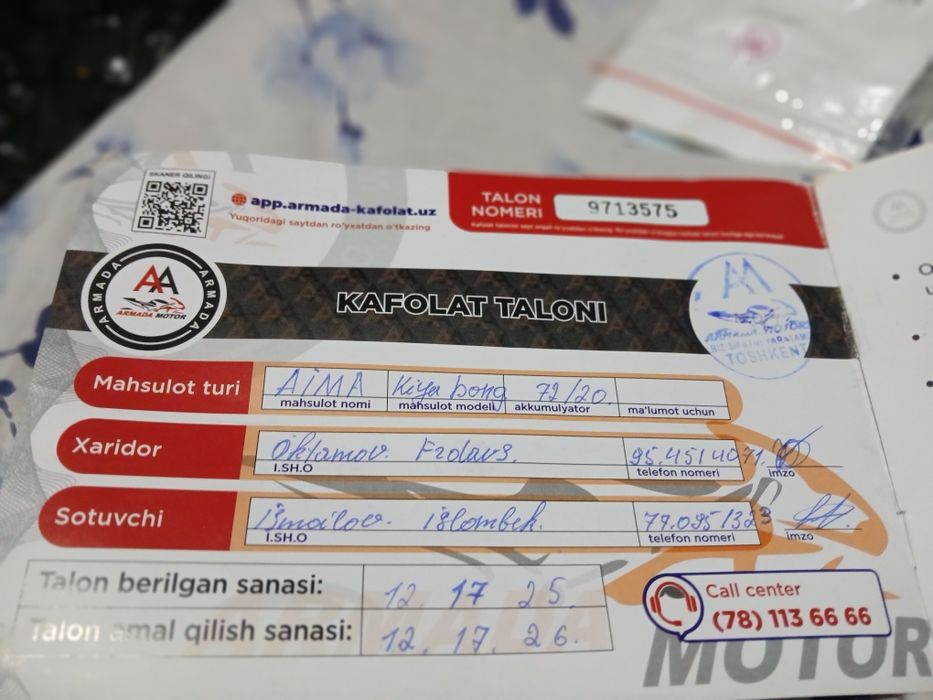 SKANER QILINGI
app.armada-kafolat.uz
Yuqoridagi saytdan ro'yxatdan o'tkazing
TALON NOMERI 9713575
ARMADA ARMADA
AA
ARMADA MOTOR
KAFOLAT TALONI
ARMADA MOTOR
TOSHKENT
Mahsulot turi AIMA 72/20
mahsulot nomi mahsulot modeli akkumulyator ma'lumot uchun
Xaridor Oktamov. 95.4514071.
I.SH.O telefon nomeri imzo
Sotuvchi Ismailov. Islombek.
I.SH.O telefon nomeri imzo
Talon berilgan sanasi: 12. 17 25.
Talon amal qilish sanasi: 12. 17. 26.
Call center
(78) 113 66 66
ARMADA
MOTOR